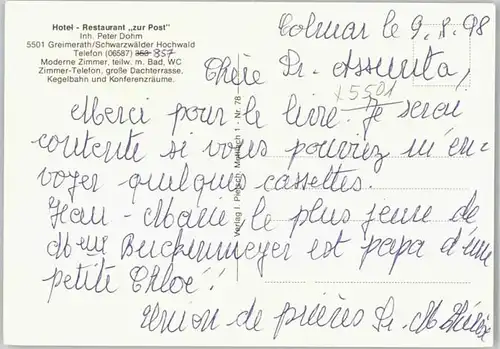 Hotel - Restaurant „zur Post"
Inh. Peter Dohm
5501 Greimerath/Schwarzwälder Hochwald
Telefon (06587) 353 857
Moderne Zimmer, teilw. m. Bad, WC
Zimmer-Telefon, große Dachterrasse,
Kegelbahn und Konferenzräume.
Colmar le 9.8.98
Chère Sr. Assunta,
x5501
Merci pour le livre. Je serai
contente si vous pouviez m'en-
voyer quelques cassettes.
Jean-Marie le plus jeune de
Mme Beckenmeyer est papa d'une
petite Chloé!
Union de prières Sr. M.
Verlag I. Mettlach 1 - Nr. 78